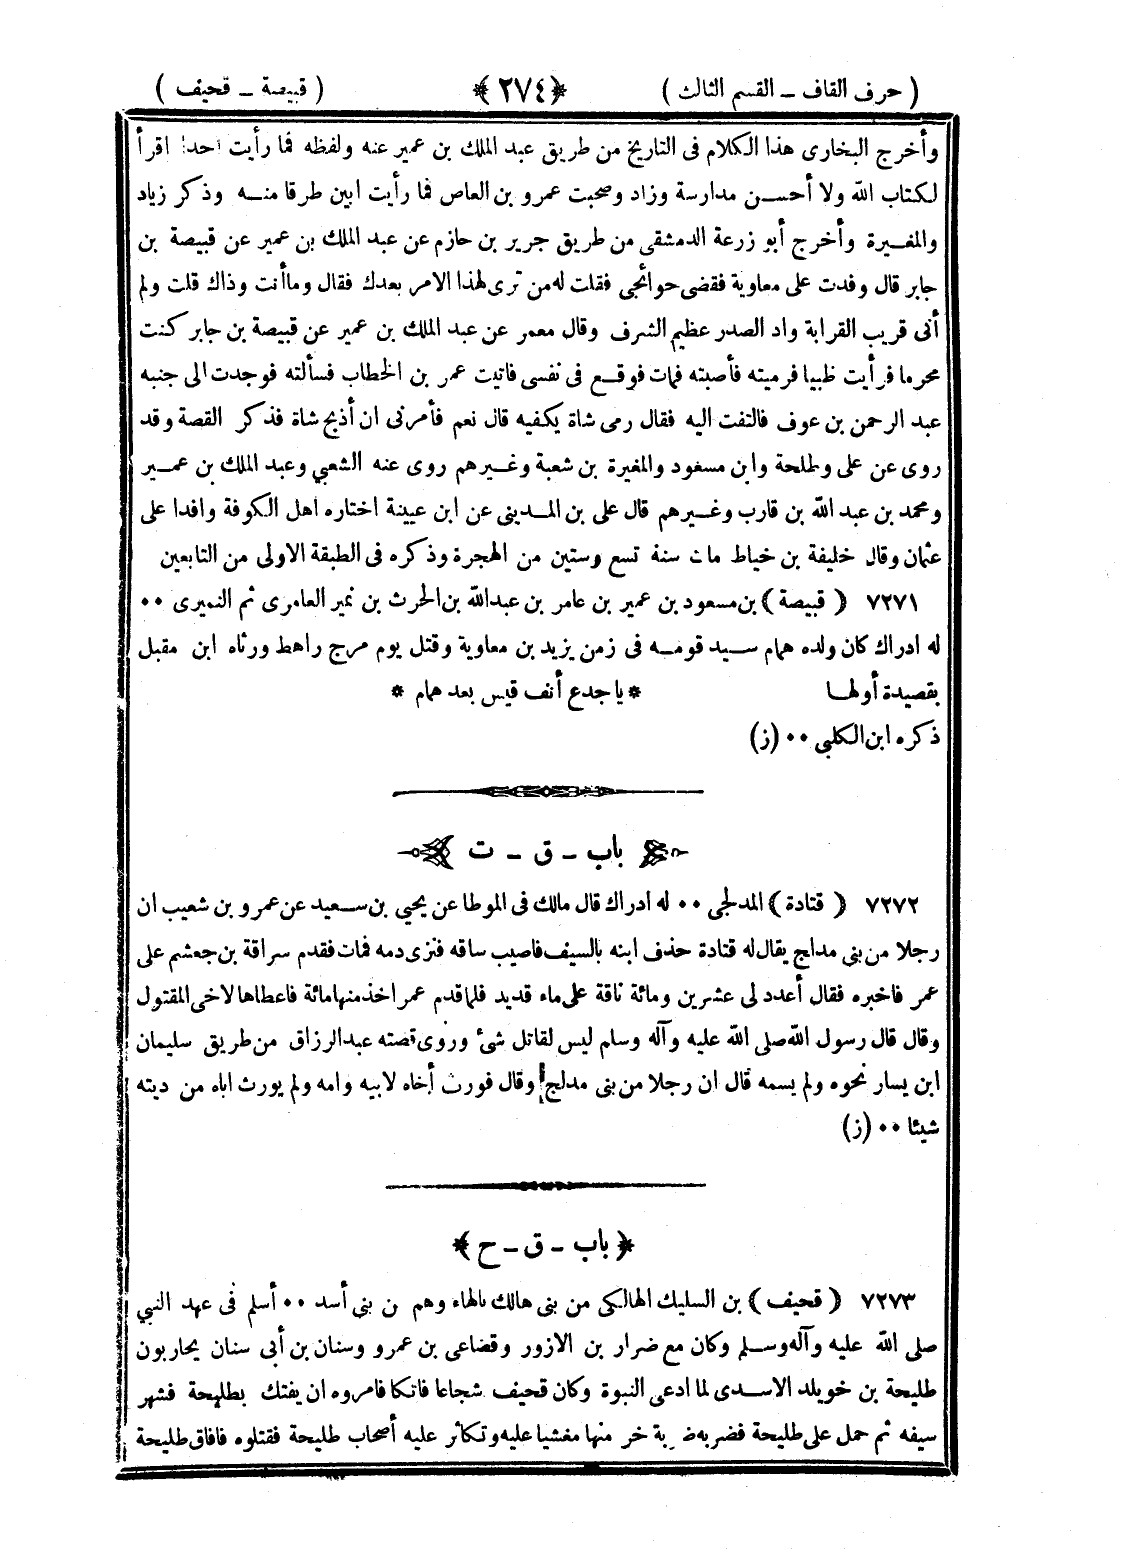 ( حرف القاف ــ القسم الثالث ) ﴿٢٧٤﴾ ( قبيصة ــ قحيف )
وأخرج البخارى هذا الكلام فى التاريخ من طريق عبد الملك بن عمير عنه ولفظه فما رأيت احدا اقرأ
لكتاب الله ولا أحسن مدارسة وزاد وصحبت عمرو بن العاص فما رأيت ابين طرفا منه وذكر زياد
والمغيرة وأخرج أبو زرعة الدمشقى من طريق جرير بن حازم عن عبد الملك بن عمير عن قبيصة بن
جابر قال وفدت على معاوية فقضى حوائجى فقلت له من ترى لهذا الامر بعدك فقال وما أنت وذاك قلت ولم
أنى قريب القرابة واد الصدر عظيم الشرف وقال معمر عن عبد الملك بن عمير عن قبيصة بن جابر كنت
محرما فرأيت ظبيا فرميته فأصبته فمات فوقع فى نفسى فاتيت عمر بن الخطاب فسألته فوجدت الى جنبه
عبد الرحمن بن عوف فالتفت اليه فقال رمى شاة يكفيه قال نعم فأمرنى ان أذبح شاة فذكر القصة وقد
روى عن على وطلحة وابن مسعود والمغيرة بن شعبة وغيرهم روى عنه الشعبي وعبد الملك بن عمير
ومحمد بن عبد الله بن قارب وغيرهم قال على بن المدينى عن ابن عيينة اختاره اهل الكوفة وافدا على
عثمان وقال خليفة بن خياط مات سنة تسع وستين من الهجرة وذكره فى الطبقة الاولى من التابعين
٧٢٧١ ( قبيصة ) بن مسعود بن عمير بن عامر بن عبدالله بن الحرث بن نمير العامرى ثم النميرى ٠٠
له ادراك كان ولده همام سيد قومه فى زمن يزيد بن معاوية وقتل يوم مرج راهط ورثاه ابن مقبل
بقصيدة أولها * يا جدع أنف قيس بعد همام *
ذكره ابن الكلبي ٠٠ (ز)
باب ــ ق ــ ت
٧٢٧٢ ( قتادة ) المدلجى ٠٠ له ادراك قال مالك فى الموطا عن يحيي بن سعيد عن عمرو بن شعيب ان
رجلا من بنى مدلج يقال له قتادة حذف ابنه بالسيف فاصيب ساقه فنزى دمه فمات فقدم سراقة بن جعشم على
عمر فاخبره فقال أعدد لى عشرين ومائة ناقة على ماء قديد فلما قدم عمر اخذ منها مائة فاعطاها لاخى المقتول
وقال قال رسول الله صلى الله عليه وآله وسلم ليس لقاتل شئ وروى قصته عبدالرزاق من طريق سليمان
ابن يسار نحوه ولم يسمه قال ان رجلا من بنى مدلج وقال فورث أخاه لابيه وامه ولم يورث اباه من ديته
شيئا ٠٠ (ز)
﴿ باب ــ ق ــ ح ﴾
٧٢٧٣ ( قحيف ) بن السليك الهالكى من بنى هالك بالهاء وهم من بنى أسد ٠٠ أسلم فى عهد النبي
صلى الله عليه وآله وسلم وكان مع ضرار بن الازور وقضاعى بن عمرو وسنان بن أبى سنان يحاربون
طليحة بن خويلد الاسدى لما ادعى النبوة وكان قحيف شجاعا فاتكا فامروه ان يفتك بطليحة فشهر
سيفه ثم حمل على طليحة فضربه ضربة خر منها مغشيا عليه وتكاثر عليه أصحاب طليحة فقتلوه فافاق طليحة